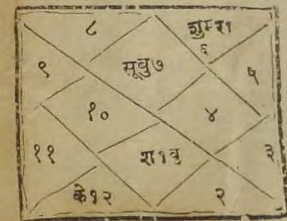 ८ शुमरा
६
९ सूबु७ ५
१० ४
११ श१वृ ३
के१२ २